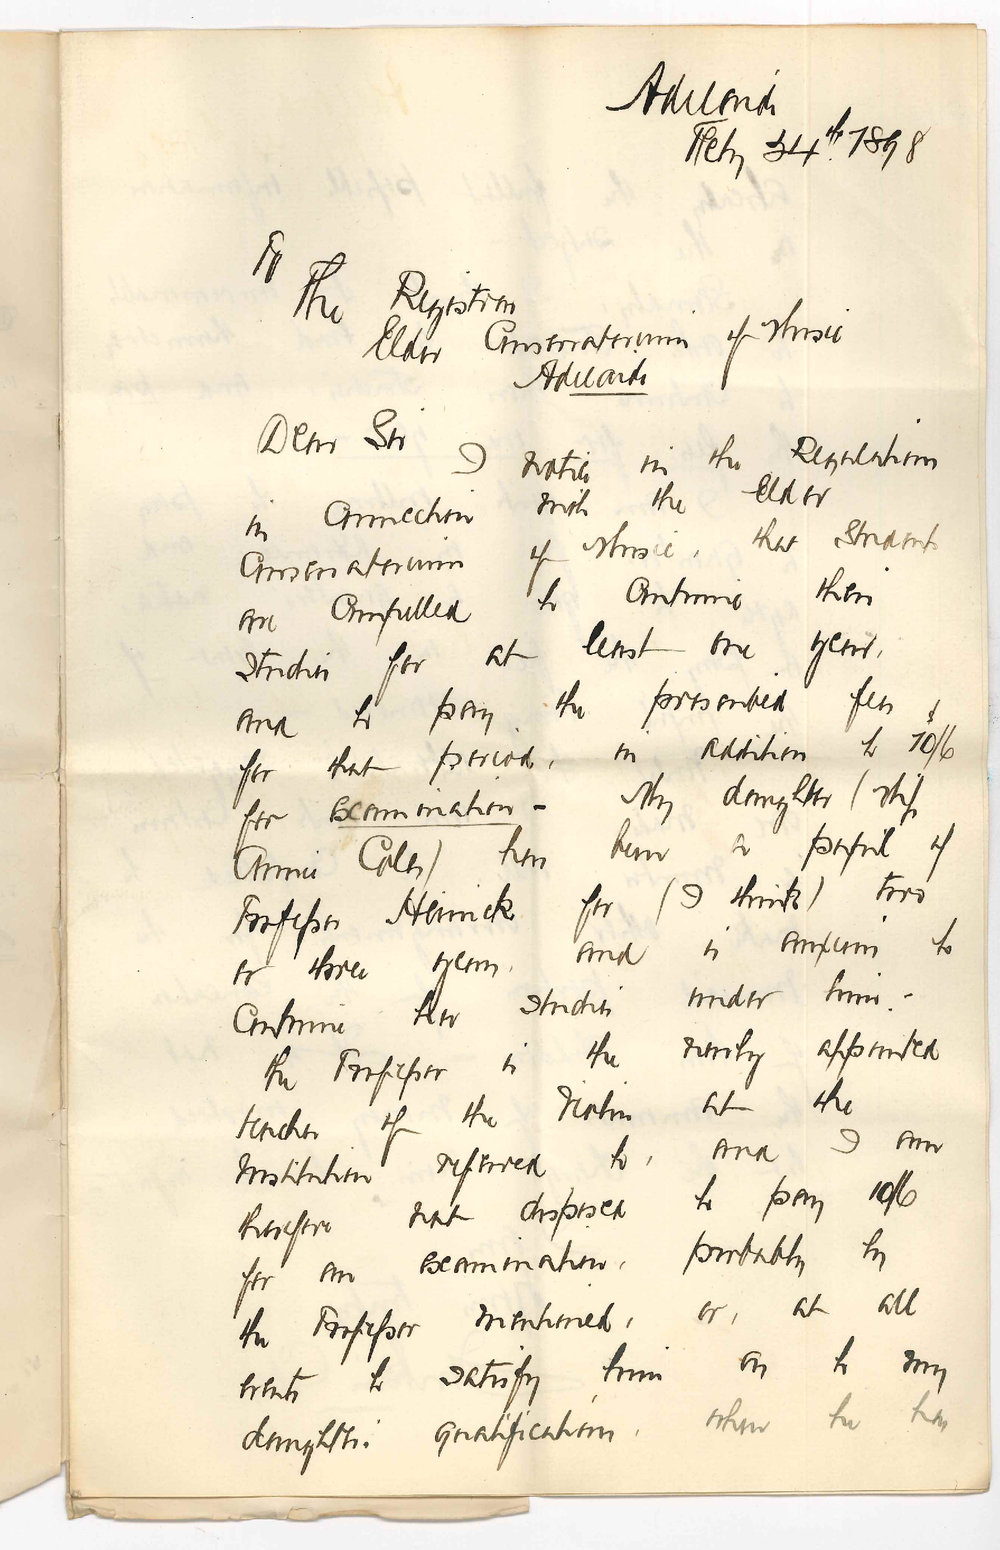 Adelaide
Feby 24th. 1898
To
The Registrar
Elder Conservatorium of Music
Adelaide
Dear Sir
I notice in the Regulations
in Connection with the Elder
Conservatorium of Music, that Students
are Compelled to Continue their
Studies for at least one year,
and to pay the prescribed fees
for that period, in addition to 10/6
for examination - My daughter (Miss
Annie Coles) has been a pupil of
Professor Heinicke for (I think) two
or three years, and is anxious to
Continue her Studies under him. -
The Professor is the newly appointed
teacher of the Violin at the
Institution referred to, and I am
therefore not disposed to pay 10/6
for an examination, probably by
the Professor mentioned, or, at all
events to satisfy him as to my
daughter's qualifications, when he has